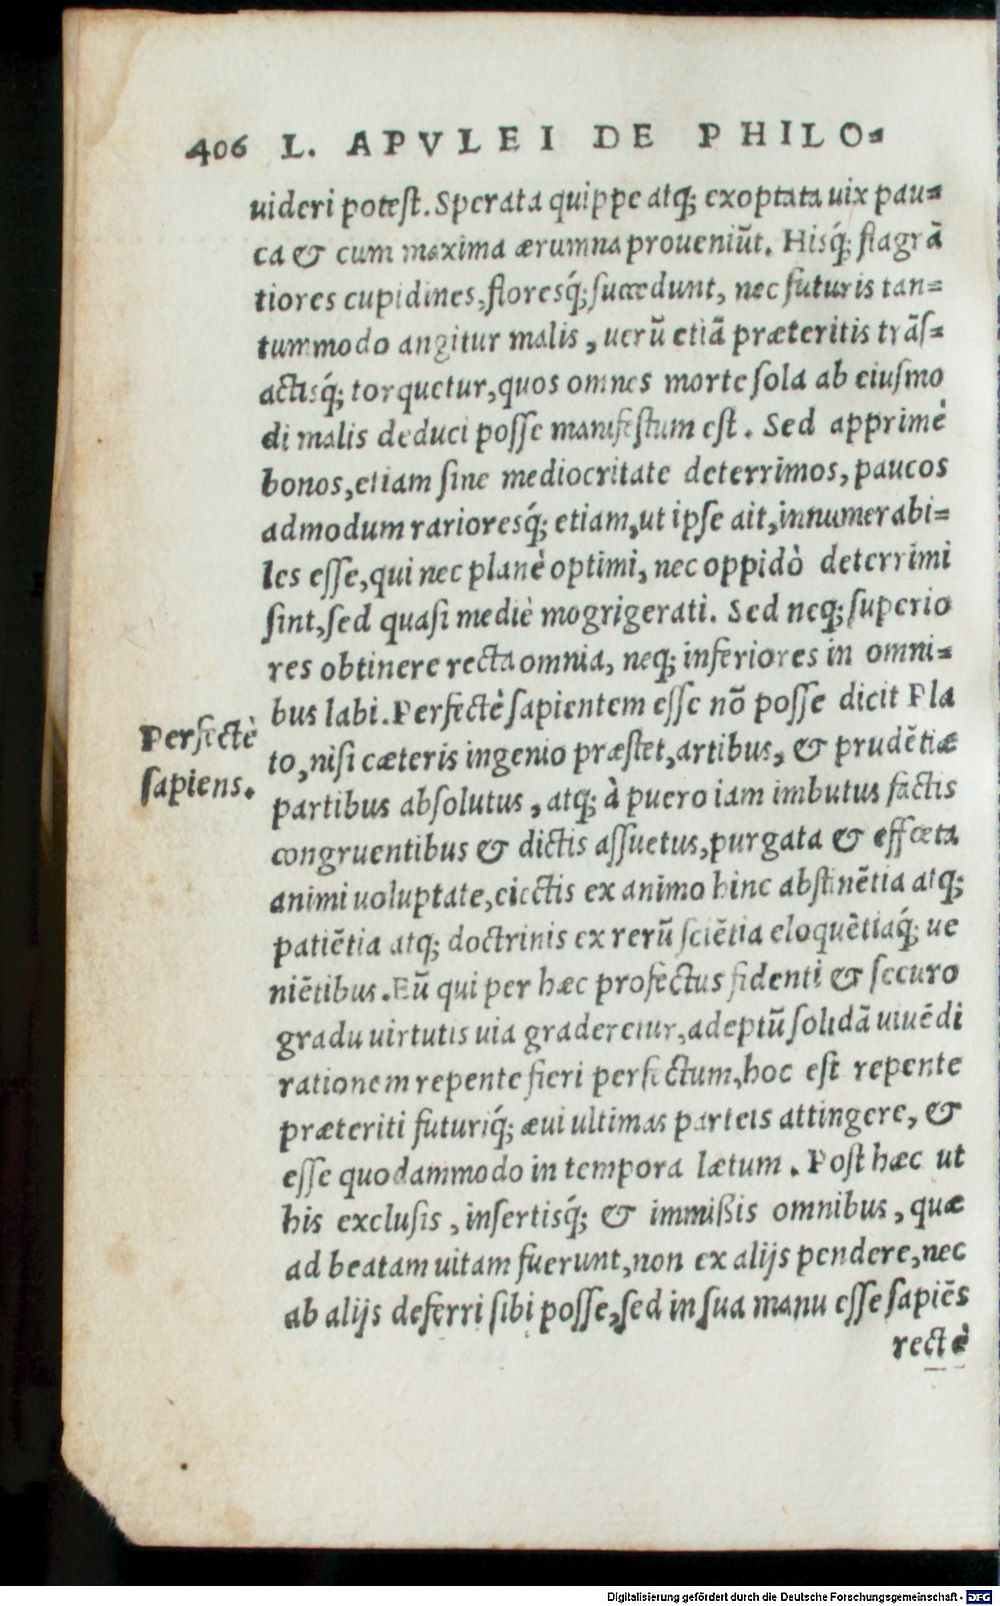 406 L. APVLEI DE PHILO-
uideri potest. Sperata quippe atq; exoptata uix pau-
ca & cum maxima ærumna proueniũt. Hisq́; flagrã
tiores cupidines, floresq́; succedunt, nec futuris tan-
tummodo angitur malis, uerũ etiã præteritis trãs-
actisq́; torquetur, quos omnes morte sola ab eiusmo
di malis deduci posse manifestum est. Sed apprimè
bonos, etiam sine mediocritate deterrimos, paucos
admodum rarioresq́; etiam, ut ipse ait, innumerabi-
les esse, qui nec planè optimi, nec oppidò deterrimi
sint, sed quasi mediè mogrigerati. Sed neq; superio
res obtinere recta omnia, neq; inferiores in omni-
bus labi. Perfectè sapientem esse nõ posse dicit Pla
Perfectè
sapiens.
to, nisi cæteris ingenio præstet, artibus, & prudẽtiæ
partibus absolutus, atq; à puero iam imbutus factis
congruentibus & dictis assuetus, purgata & effœta
animi uoluptate, eiectis ex animo hinc abstinẽtia atq;
patiẽtia atq; doctrinis ex rerũ sciẽtia eloquẽtiaq́; ue
niẽtibus. Eũ qui per hæc profectus fidenti & securo
gradu uirtutis uia graderetur, adeptũ solidã uiuẽdi
rationem repente fieri perfectum, hoc est repente
præteriti futuriq́; æui ultimas parteis attingere, &
esse quodammodo in tempora lætum. Post hæc ut
his exclusis, insertisq́; & immißis omnibus, quæ
ad beatam uitam fuerunt, non ex alijs pendere, nec
ab alijs deferri sibi posse, sed in sua manu esse sapiẽs
rectè
Digitalisierung gefördert durch die Deutsche Forschungsgemeinschaft - DFG